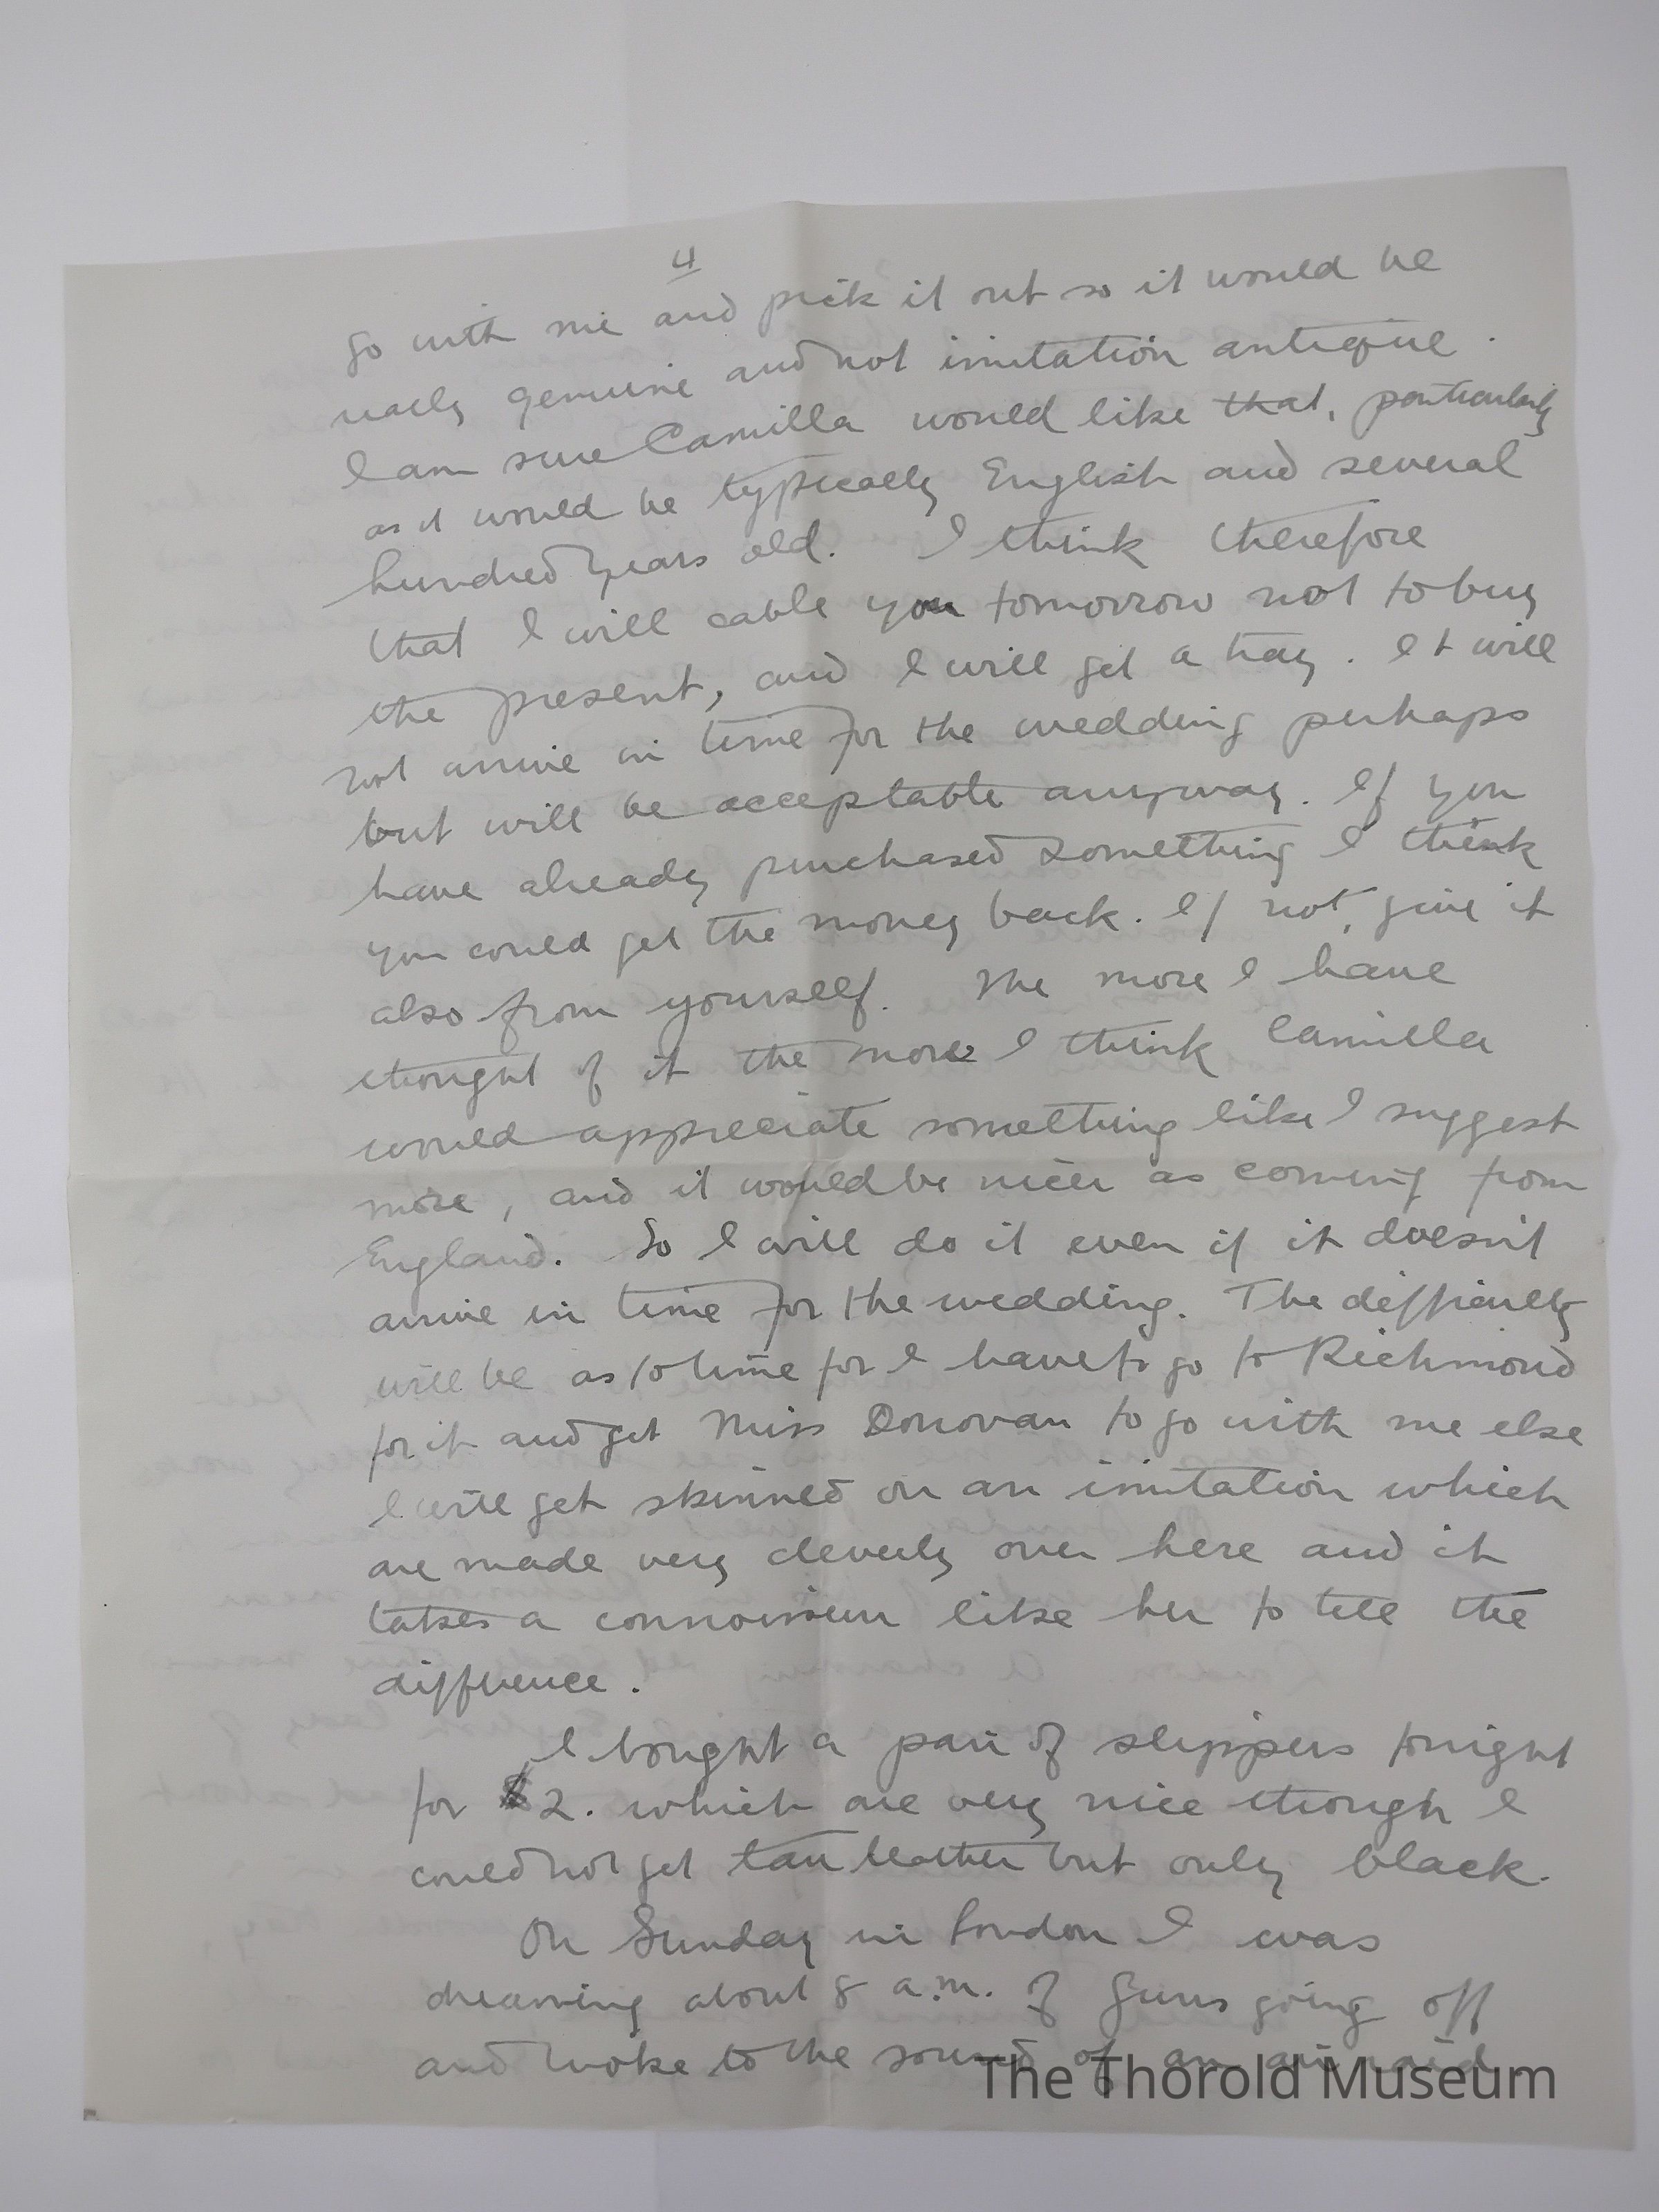 4
go with me and pick it out so it would be
really genuine and not imitation antique.
I am sure Camilla would like that, particularly
as it would be typically English and several
hundred years old. I think therefore
that I will cable you tomorrow not to buy
the present, and I will get a tray. It will
not arrive in time for the wedding perhaps
but will be acceptable anyway. If you
have already purchased something I think
you could get the money back. If not, give it
also from yourself. The more I have
thought of it the more I think Camilla
would appreciate something like I suggest
more, and it would be nicer as coming from
England. So I will do it even if it doesn't
arrive in time for the wedding. The difficulty
will be as to time for I have to go to Richmond
for it and get Miss Donovan to go with me else
I will get skinned on an imitation which
are made very cleverly over here and it
takes a connoisseur like her to tell the
difference.
I bought a pair of slippers tonight
for $2. which are very nice though I
could not get tan leather but only black.
On Sunday in London I was
dreaming about 8 a.m. of guns going off
and woke to the sound of an air raid.
The Thorold Museum